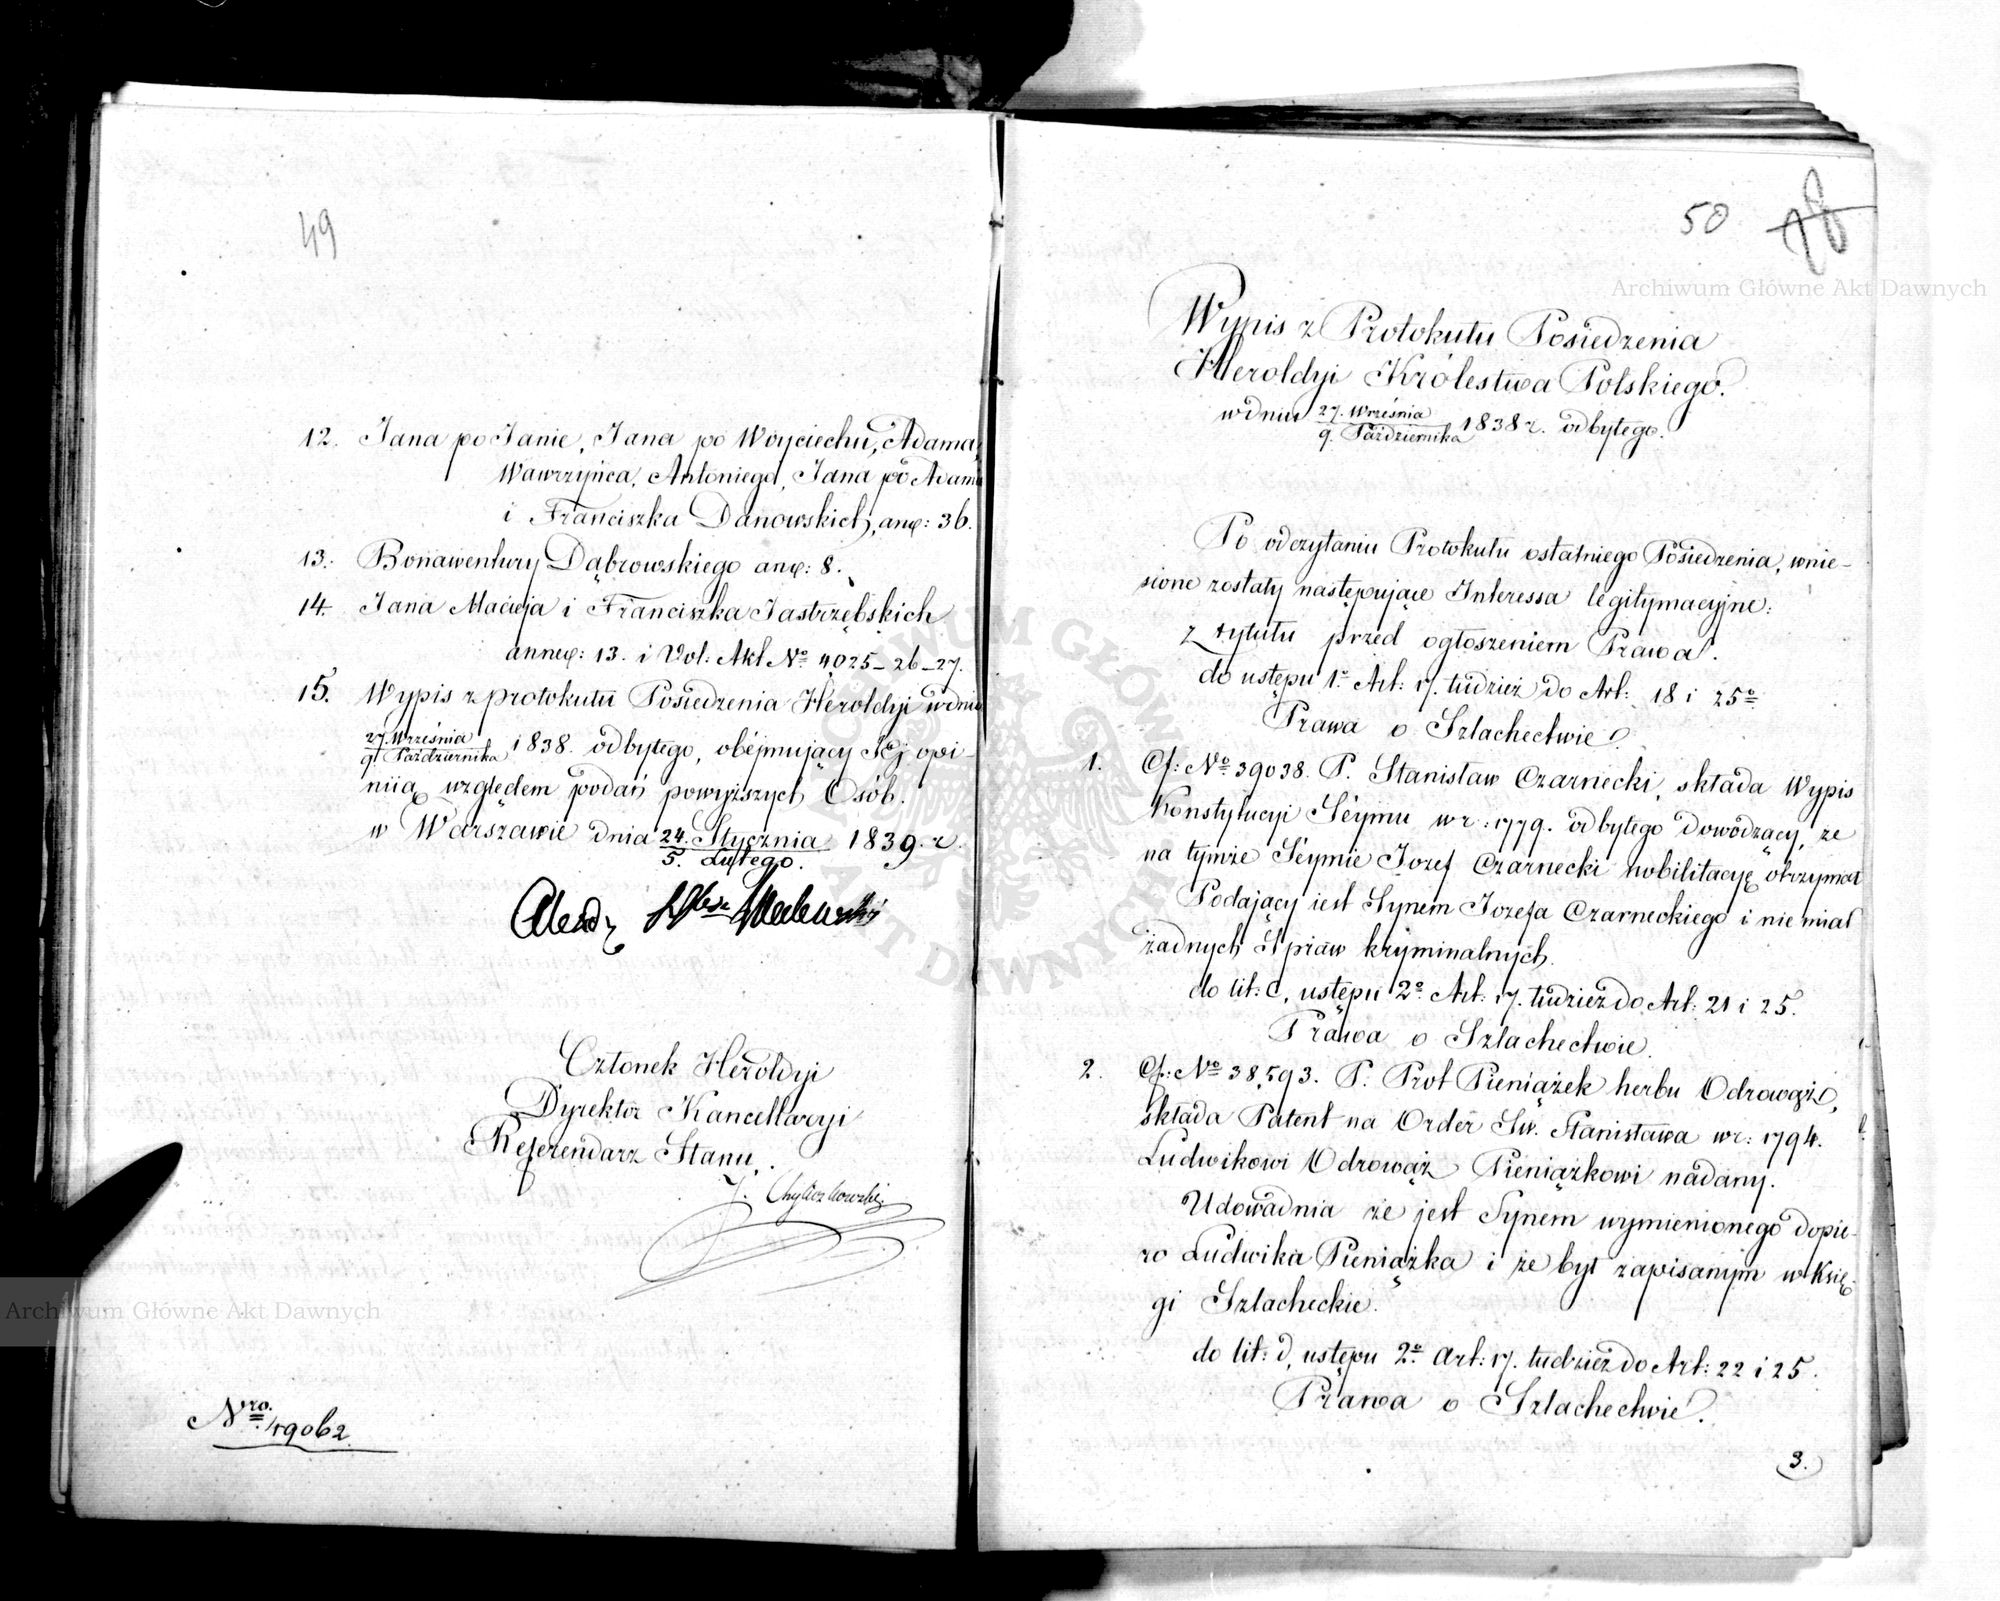 49
12. Jana po Janie, Jana po Woyciechu, Adama,
Wawrzyńca, Antoniego, Jana po Adamie
i Franciszka Danowskich, anx: 36.
13. Bonawentury Dąbrowskiego anx: 8.
14. Jana Macieja i Franciszka Jastrzębskich
annex: 13. i Vol: Akt No 4025-26-27.
15. Wypis z protokułu Posiedzenia Heroldyi w dniu
27. Września
9. Października 1838. odbytego, obejmujący Jej opi-
niią względem podań powyższych Osób.
w Warszawie dnia 24. Stycznia 1839. r.
5. Lutego.
Członek Heroldyi
Dyrektor Kancellaryi
Referendarz Stanu,
Nro. 49062
50 48
Wypis z Protokułu Posiedzenia
Heroldyi Królestwa Polskiego.
w dniu 27. Września
9. Października 1838 r. odbytego.
Po odczytaniu Protokułu ostatniego Posiedzenia, wnie-
sione zostały następujące Interessa legitymacyjne:
z tytułu przed ogłoszeniem Prawa.
do ustępu 1o Art: 17. tudzież do Art: 18 i 25o
Prawa o Szlachectwie.
1. Cf: No 39038. P. Stanisław Czarnecki, składa Wypis
Konstytucyi Séymu w r: 1779. odbytego dowodzący, że
na tymże Séymie Jozef Czarnecki nobilitacyę otrzymał
Podający iest Synem Jozefa Czarneckiego i nie miał
żadnych Spraw kryminalnych.
do lit: C, ustępu 2o Art: 17. tudzież do Art: 21 i 25.
Prawa o Szlachectwie.
2. Cf: No 38,593. P. Prot Pieniążek herbu Odrowąż,
składa Patent na Order Św. Stanisława w r: 1794.
Ludwikowi Odrowąż Pieniążkowi nadany.
Udowadnia że jest Synem wymienionego dopie-
ro Ludwika Pieniążka i że był zapisanym w Księ-
gi Szlacheckie.
do lit: d, ustępu 2o Art: 17. tudzież do Art: 22 i 25.
Prawa o Szlachectwie.
3.
Archiwum Główne Akt Dawnych
Archiwum Główne Akt Dawnych
ARCHIWUM GŁÓWNE AKT DAWNYCH